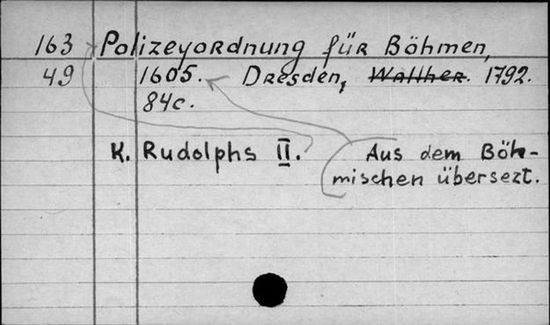 163 Polizeyordnung für Böhmen,
49 1605. Dresden, Walther. 1792.
84c.
K. Rudolphs II. Aus dem Böh-
mischen übersezt.